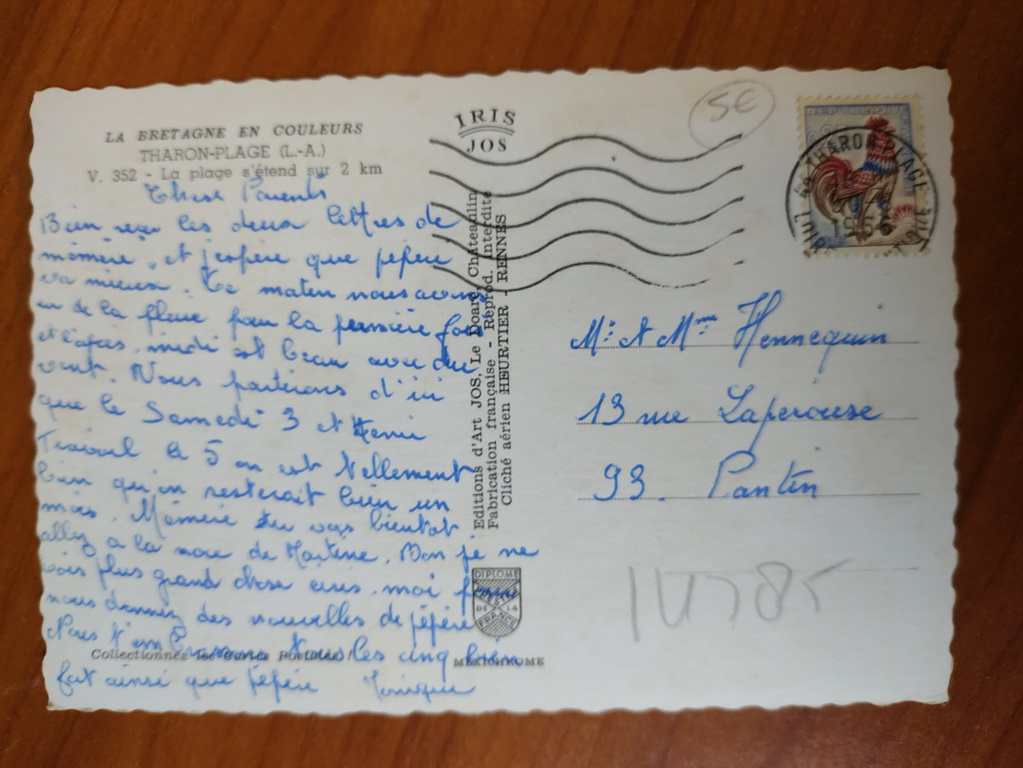 LA BRETAGNE EN COULEURS
THARON-PLAGE (L.-A.)
V. 352 - La plage s'étend sur 2 km
IRIS
JOS
5€
THARON PLAGE
1965
Chers Parents
Bien reçu les deux lettres de
mémère, et j'espère que pépère
va mieux. Ce matin nous avons
eu de la pour la première fois
et l'après-midi est beau avec du
vent. Nous partirons d'ici
que le Samedi 3 et
Travail le 5 on est tellement
bien qu'on resterait bien un
mois. Mémère tu vas bientôt
allez a la de Martine. Bon je ne
vois plus grand chose moi pour
nous donnez des nouvelles de pépère
Nous t'embrassons tous les cinq bien
fort ainsi que pépère Monique
Editions d'Art JOS, Le Doaré, Châteaulin
Fabrication française - Reprod. interdite
Cliché aérien HEURTIER - RENNES
Mr et Mme Hennequin
13 rue Laperouse
93. Pantin
DIPLOME
DE LA
FRANCE
Collectionnez les Cartes Postales !
MEXICHROME